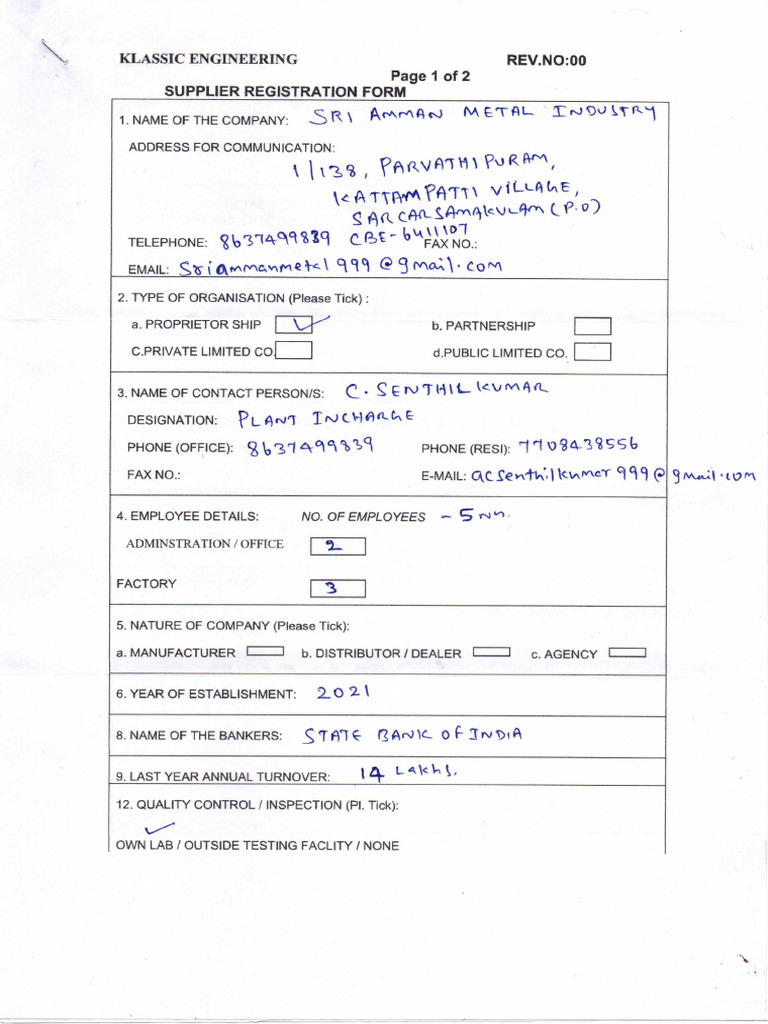 KLASSIC ENGINEERING REV.NO:00
Page 1 of 2
SUPPLIER REGISTRATION FORM
1. NAME OF THE COMPANY: SRI AMMAN METAL INDUSTRY
ADDRESS FOR COMMUNICATION:
1/138, PARVATHIPURAM,
KATTAMPATTI VILLAGE,
SARCARSAMAKULAM (P.O)
CBE-641107
TELEPHONE: 8637499839 FAX NO.:
EMAIL: Sriammanmetal999@gmail.com
2. TYPE OF ORGANISATION (Please Tick) :
a. PROPRIETOR SHIP ✓ b. PARTNERSHIP
C.PRIVATE LIMITED CO. d.PUBLIC LIMITED CO.
3. NAME OF CONTACT PERSON/S: C. SENTHIL KUMAR
DESIGNATION: PLANT INCHARGE
PHONE (OFFICE): 8637499839 PHONE (RESI): 7708438556
FAX NO.: E-MAIL: acsenthilkumar999@gmail.com
4. EMPLOYEE DETAILS: NO. OF EMPLOYEES - 5
ADMINSTRATION / OFFICE 2
FACTORY 3
5. NATURE OF COMPANY (Please Tick):
a. MANUFACTURER b. DISTRIBUTOR / DEALER c. AGENCY
6. YEAR OF ESTABLISHMENT: 2021
8. NAME OF THE BANKERS: STATE BANK OF INDIA
9. LAST YEAR ANNUAL TURNOVER: 14 Lakhs.
12. QUALITY CONTROL / INSPECTION (Pl. Tick):
✓
OWN LAB / OUTSIDE TESTING FACLITY / NONE